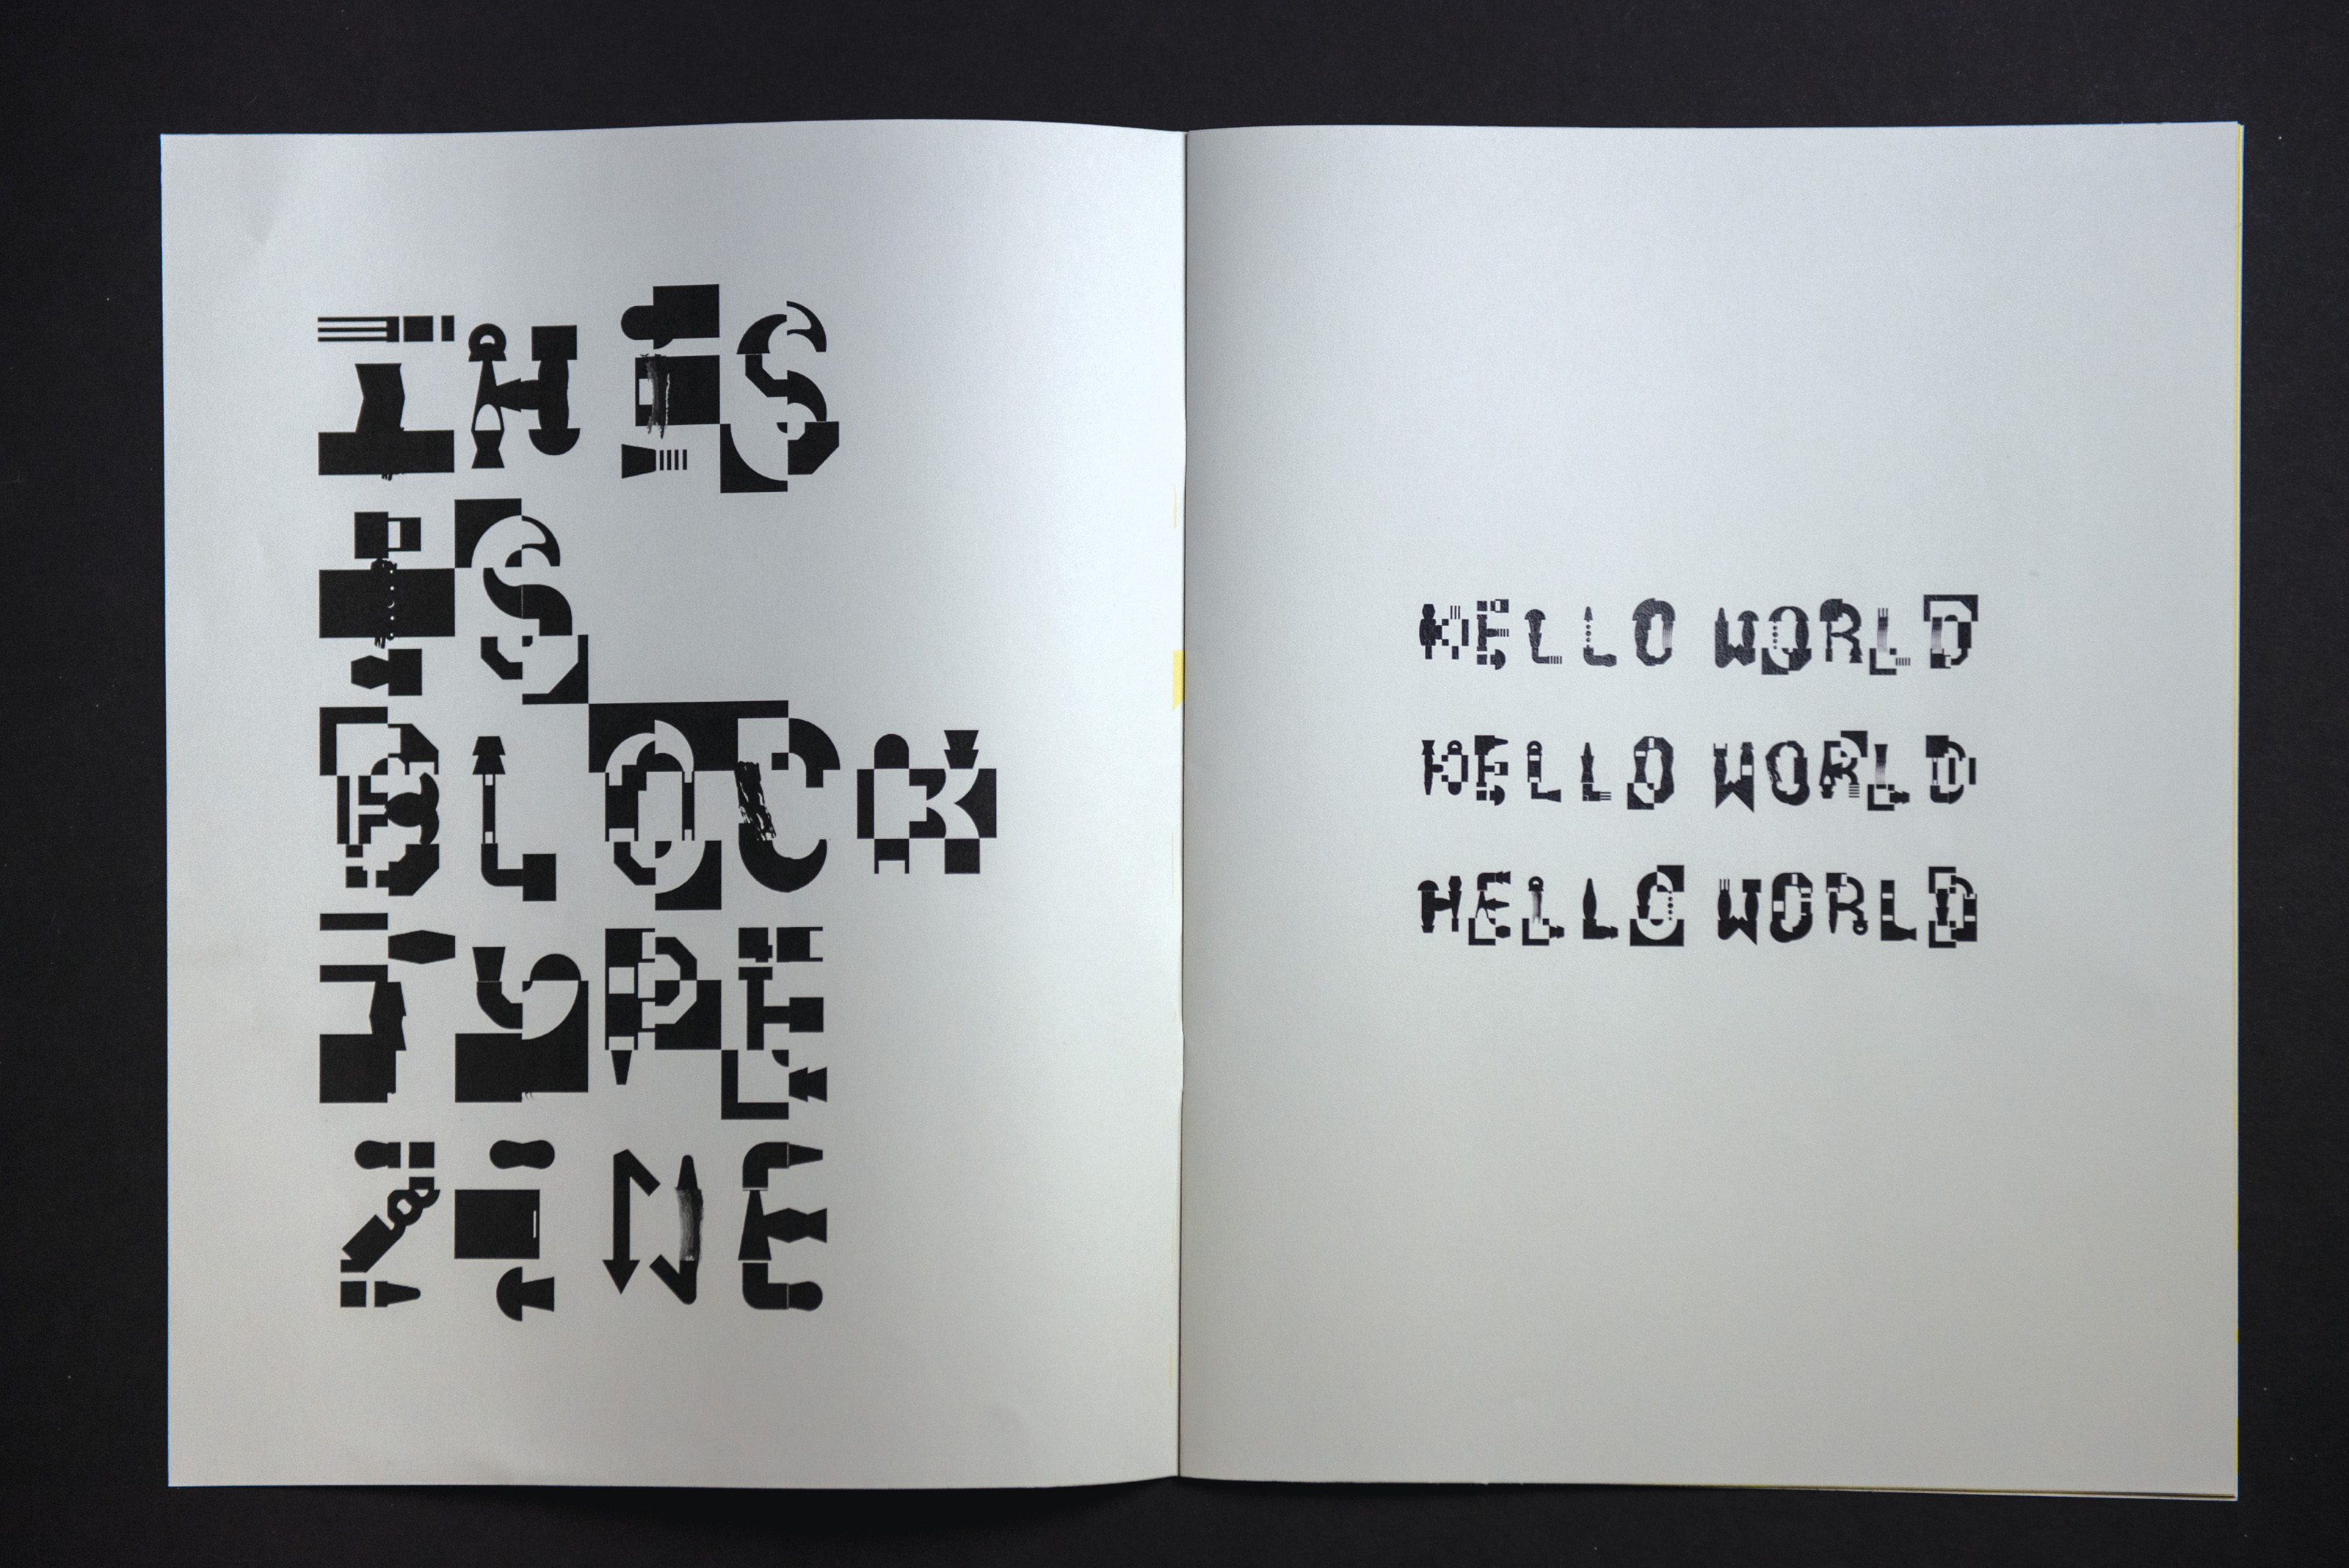 THIS
IS
BLOCK
TYPE
ZINE
HELLO WORLD
HELLO WORLD
HELLO WORLD